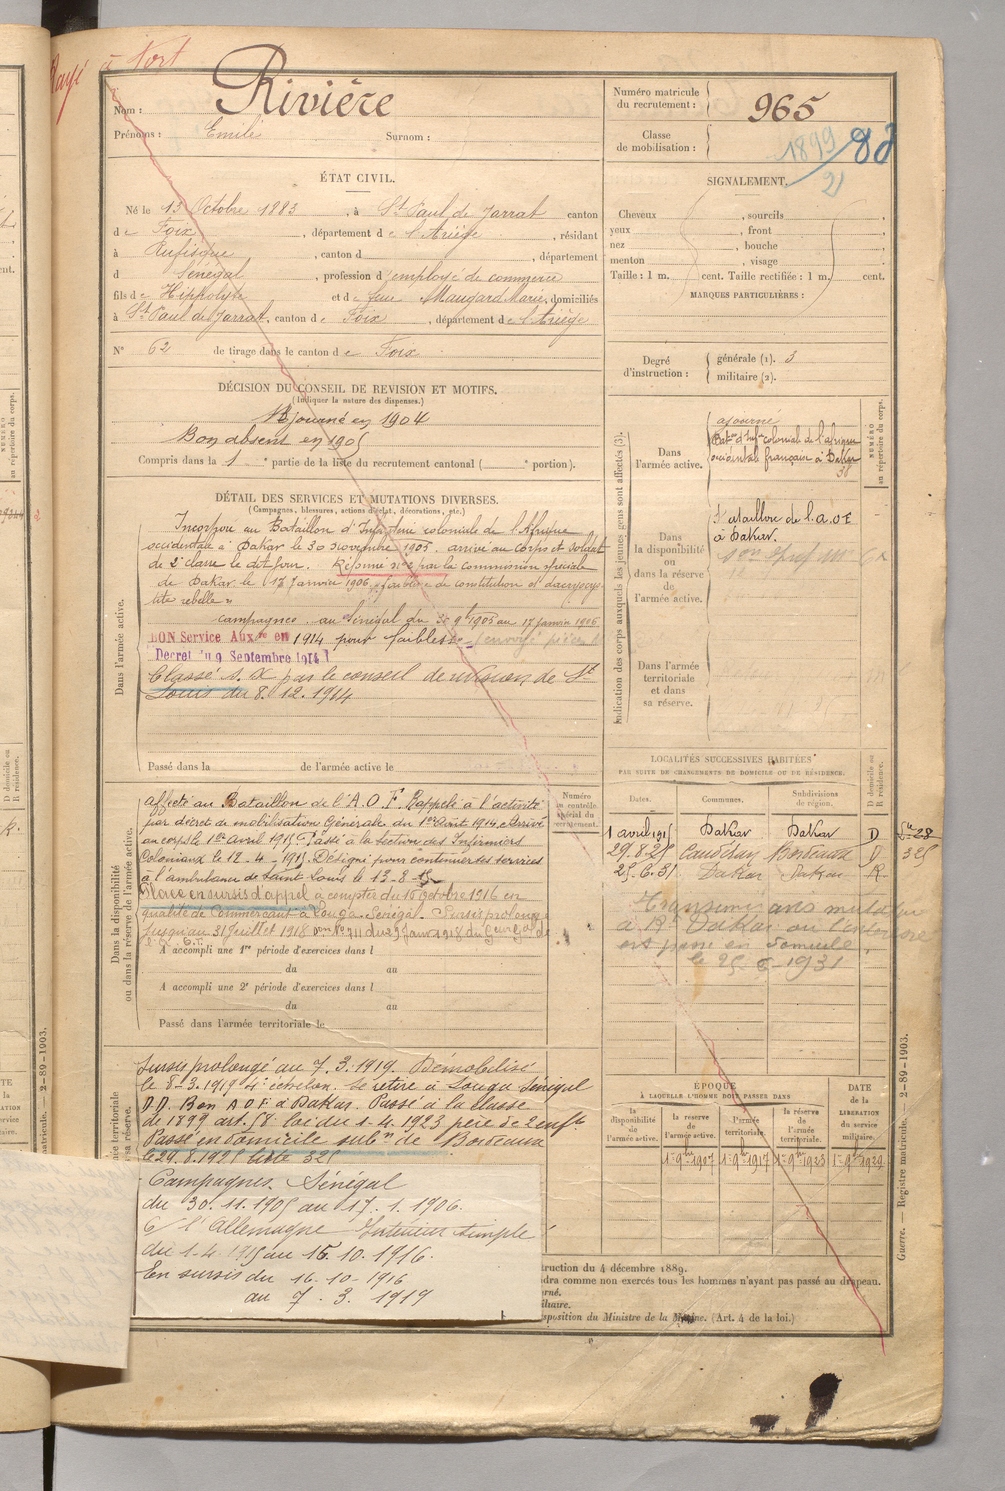 Rayé à tort
Nom : Rivière
Prénoms : Emile Surnom :
Numéro matricule du recrutement : 965
Classe de mobilisation : 1899
21
ÉTAT CIVIL.
Né le 13 Octobre 1883, à St Paul de Jarrat canton
de Foix, département de l'Ariège, résidant
à Rufisque, canton d , département
d Sénégal, profession d'employé de commerce
fils de Hippolyte et de feue Maugard Marie, domiciliés
à St Paul de Jarrat, canton de Foix, département de l'Ariège
N° 62 de tirage dans le canton de Foix
SIGNALEMENT.
Cheveux , sourcils ,
yeux , front ,
nez , bouche ,
menton , visage
Taille : 1 m. cent. Taille rectifiée : 1 m. cent.
MARQUES PARTICULIÈRES :
Degré d'instruction : générale (1). 3
militaire (2).
DÉCISION DU CONSEIL DE REVISION ET MOTIFS.
(Indiquer la nature des dispenses.)
Ajourné en 1904
Bon absent en 1905
Compris dans la 1 e partie de la liste du recrutement cantonal ( portion).
DÉTAIL DES SERVICES ET MUTATIONS DIVERSES.
(Campagnes, blessures, actions d'éclat, décorations, etc.)
Dans l'armée active.
Incorporé au Bataillon d'Infanterie coloniale de l'Afrique
occidentale à Dakar le 30 novembre 1905. arrivé au corps et soldat
de 2e classe le dit jour. Réformé n° 2 par la commission spéciale
de Dakar le 17 Janvier 1906, "faiblesse de constitution et dacryocys
tite rebelle"
campagnes au Sénégal du 30 9bre 1905 au 17 janvier 1906
BON Service Auxre en 1914 pour faiblesse
Décret du 9 Septembre 1914
Classé S. X par le conseil de révision de St
Louis du 8.12.1914
Passé dans la de l'armée active le
Indication des corps auxquels les jeunes gens sont affectés (3).
NUMÉRO au répertoire du corps.
Dans l'armée active.
ajourné
Baton d'Infie coloniale de l'afrique
occidentale française à Dakar
38
Dans la disponibilité ou dans la réserve de l'armée active.
Bataillon de l'A.O.F
à Dakar.
Dans l'armée territoriale et dans sa réserve.
LOCALITÉS SUCCESSIVES HABITÉES
PAR SUITE DE CHANGEMENTS DE DOMICILE OU DE RÉSIDENCE.
Dates. Communes. Subdivisions de région. D domicile ou R résidence.
1 avril 1915 Dakar Dakar D
29.8.25 Caudéran Bordeaux D 325
25.6.31 Dakar Dakar R
Transmis avis mutation
à Dakar où l'intéressé
est passé en domicile
le 25-6-1931
Dans la disponibilité ou dans la réserve de l'armée active.
Numéro au contrôle spécial du recrutement.
affecté au Bataillon de l'A.O.F. Rappelé à l'activité
par décret de mobilisation Générale du 1er Août 1914. Arrivé
au corps le 1er avril 1915. Passé à la section des Infirmiers
Coloniaux le 12-4-1915. Désigné pour continuer ses services
à l'ambulance de Saint Louis le 13-8-15
Placé en sursis d'appel à compter du 16 octobre 1916 en
qualité de Commerçant à Louga. Sénégal. Sursis prolongé
jusqu'au 31 juillet 1918
A accompli une 1re période d'exercices dans l
du au
A accompli une 2e période d'exercices dans l
du au
Passé dans l'armée territoriale le
Sursis prolongé au 7.3.1919. Démobilisé
le 8-3-1919 4e échelon. Se retire à Louga Sénégal
D.D. Bon A O F à Dakar. Passé à la classe
de 1899 art. 58 loi du 1.4.1923 père de 2 enfts
Passé en domicile subon de Bordeaux
le 29.8.1925 liste 325
Campagnes. Sénégal
du 30.11.1905 au 17.1.1906.
C/ l'Allemagne Intérieur simple
du 1.4.1915 au 15.10.1916.
En sursis du 16-10-1916
au 7.3.1919
ÉPOQUE
À LAQUELLE L'HOMME DOIT PASSER DANS
la disponibilité de l'armée active. la réserve de l'armée active. l'armée territoriale. la réserve de l'armée territoriale. DATE de la LIBÉRATION du service militaire.
1er 9bre 1907 1er 9bre 1917 1er 9bre 1923 1er 9bre 1929
truction du 4 décembre 1889.
dra comme non exercés tous les hommes n'ayant pas passé au drapeau.
rné.
iliaire.
sposition du Ministre de la Marine. (Art. 4 de la loi.)
Guerre. — Registre matricule. — 2-89-1903.